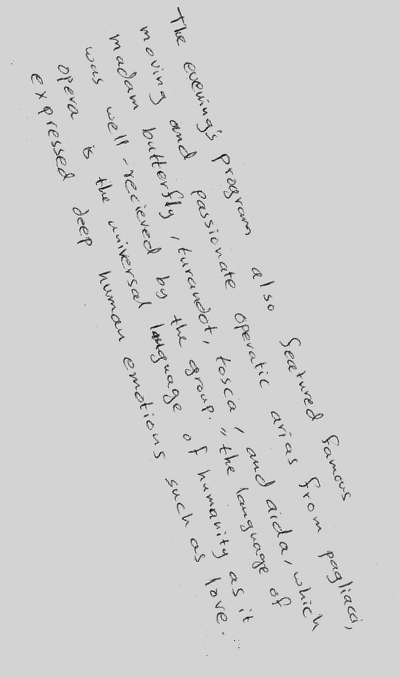 The evening's program also featured famous
moving and passionate operatic arias from pagliacci,
madam butterfly, turandot, tosca, and aida, which
was well-recieved by the group. "the language of
opera is the universal language of humanity as it
expressed deep human emotions such as love.